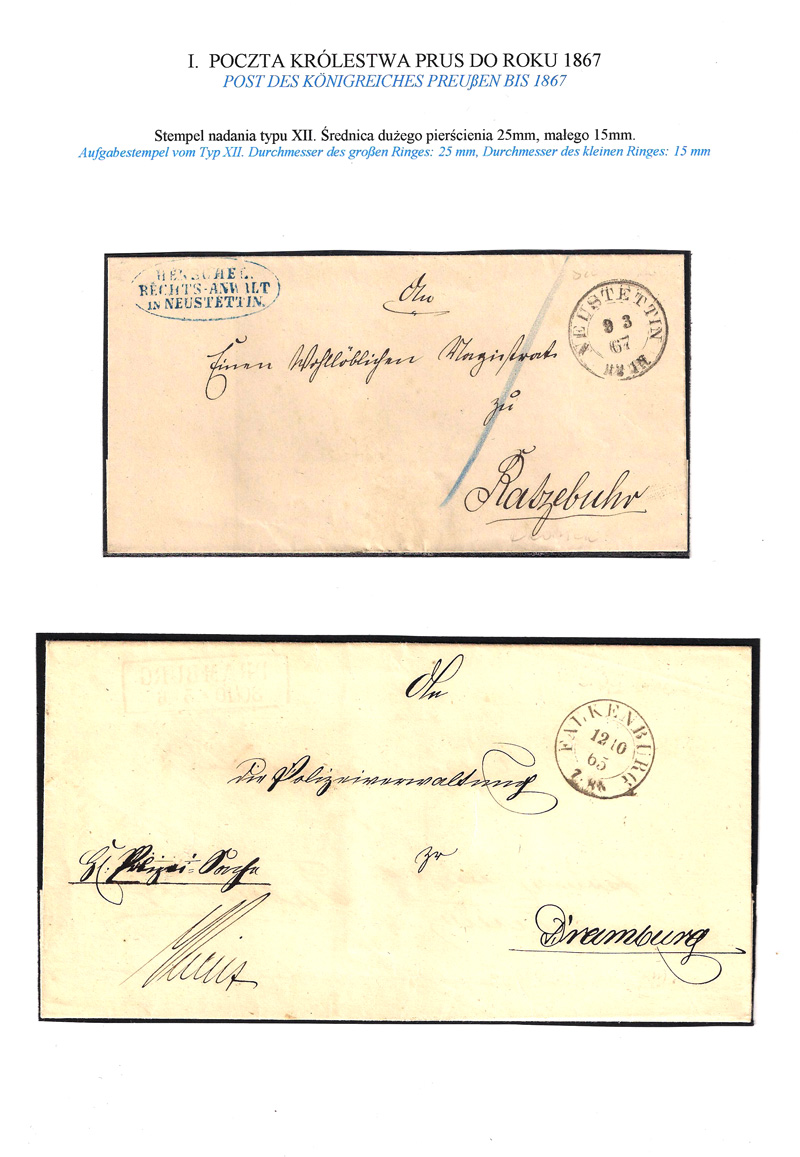 I. POCZTA KRÓLESTWA PRUS DO ROKU 1867
POST DES KÖNIGREICHES PREUβEN BIS 1867
Stempel nadania typu XII. Średnica dużego pierścienia 25mm, małego 15mm.
Aufgabestempel vom Typ XII. Durchmesser des großen Ringes: 25 mm, Durchmesser des kleinen Ringes: 15 mm
HENSCHEL.
RECHTS-ANWALT
IN NEUSTETTIN.
NEUSTETTIN
9 3
67
An
Einen Wohllöblichen Magistrat
zu
Ratzebuhr
DRAMBURG
An
FALKENBURG
12 10
65
die Polizeiverwaltung
Polizei-Sache
zu
Dramburg